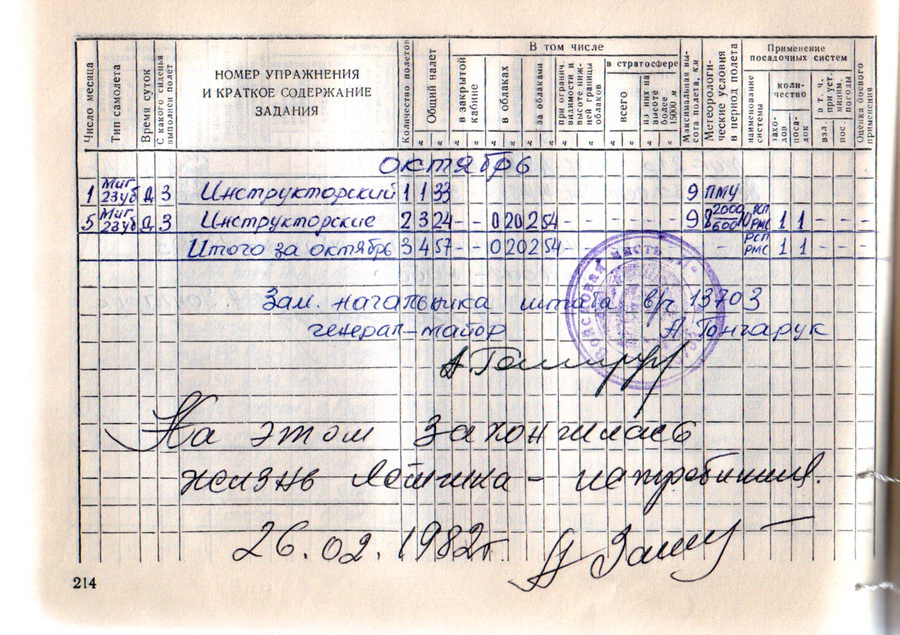 Число месяца
Тип самолета
Время суток
С какого сиденья выполнен полет
НОМЕР УПРАЖНЕНИЯ
И КРАТКОЕ СОДЕРЖАНИЕ
ЗАДАНИЯ
Количество полетов
Общий налет
В том числе
в закрытой кабине
в облаках
за облаками
при огранич. видимости и высоте нижней границы облаков
в стратосфере
всего
из них на высоте более 15000 м
Максимальная высота полета, км
Метеорологические условия в период полета
Применение
посадочных систем
наименование системы
количество
заходов
посадок
в т. ч. при уст. миним. погоды
взл.
пос.
Оценка боевого применения
октябрь
1 Миг 23уб Д 3 Инструкторский 1 1 33 9 ПМУ
5 Миг 23уб Д 3 Инструкторские 2 3 24 - - 0 20 2 54 - - - - - - 9 8 2000/600 10 РСП РМС 1 1 - - -
Итого за октябрь 3 4 57 - - 0 20 2 54 - РСП РМС 1 1 - -
Зам. начальника штаба в/ч 13703
генерал-майор А Гончарук
На этом закончилась
жизнь лётчика - истребителя.
26.02.1982г.
214